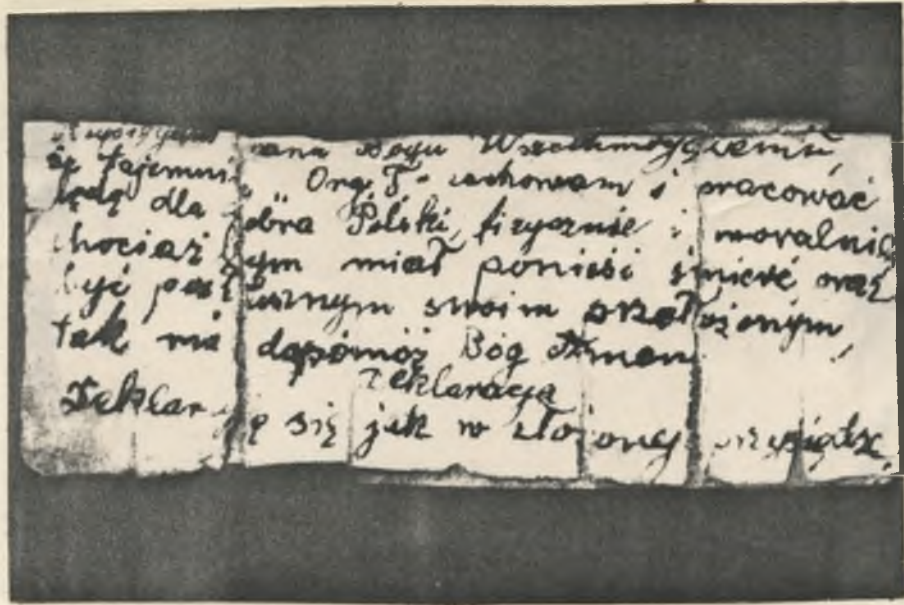 Bogu Wszechmogącemu,
że tajemni Org. T. zachowam i pracować
będę dla dobra Polski, fizycznie i moralnie
chociaż bym miał ponieść śmierć oraz
być posłusznym swoim przełożonym,
tak mi dopomóż Bóg Amen
Deklaracja
Deklar ę się jak w złożonej przysiądze,